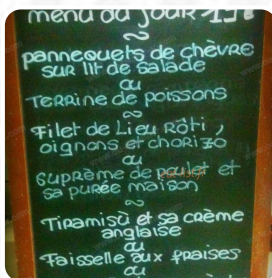 menu du jour
~
pannequets de chèvre
sur lit de salade
ou
Terrine de poissons
~
Filet de Lieu Rôti,
oignons et chorizo
ou
suprème de poulet et
sa purée maison
~
Tiramisù et sa crème
anglaise
ou
Faisselle aux fraises
ou